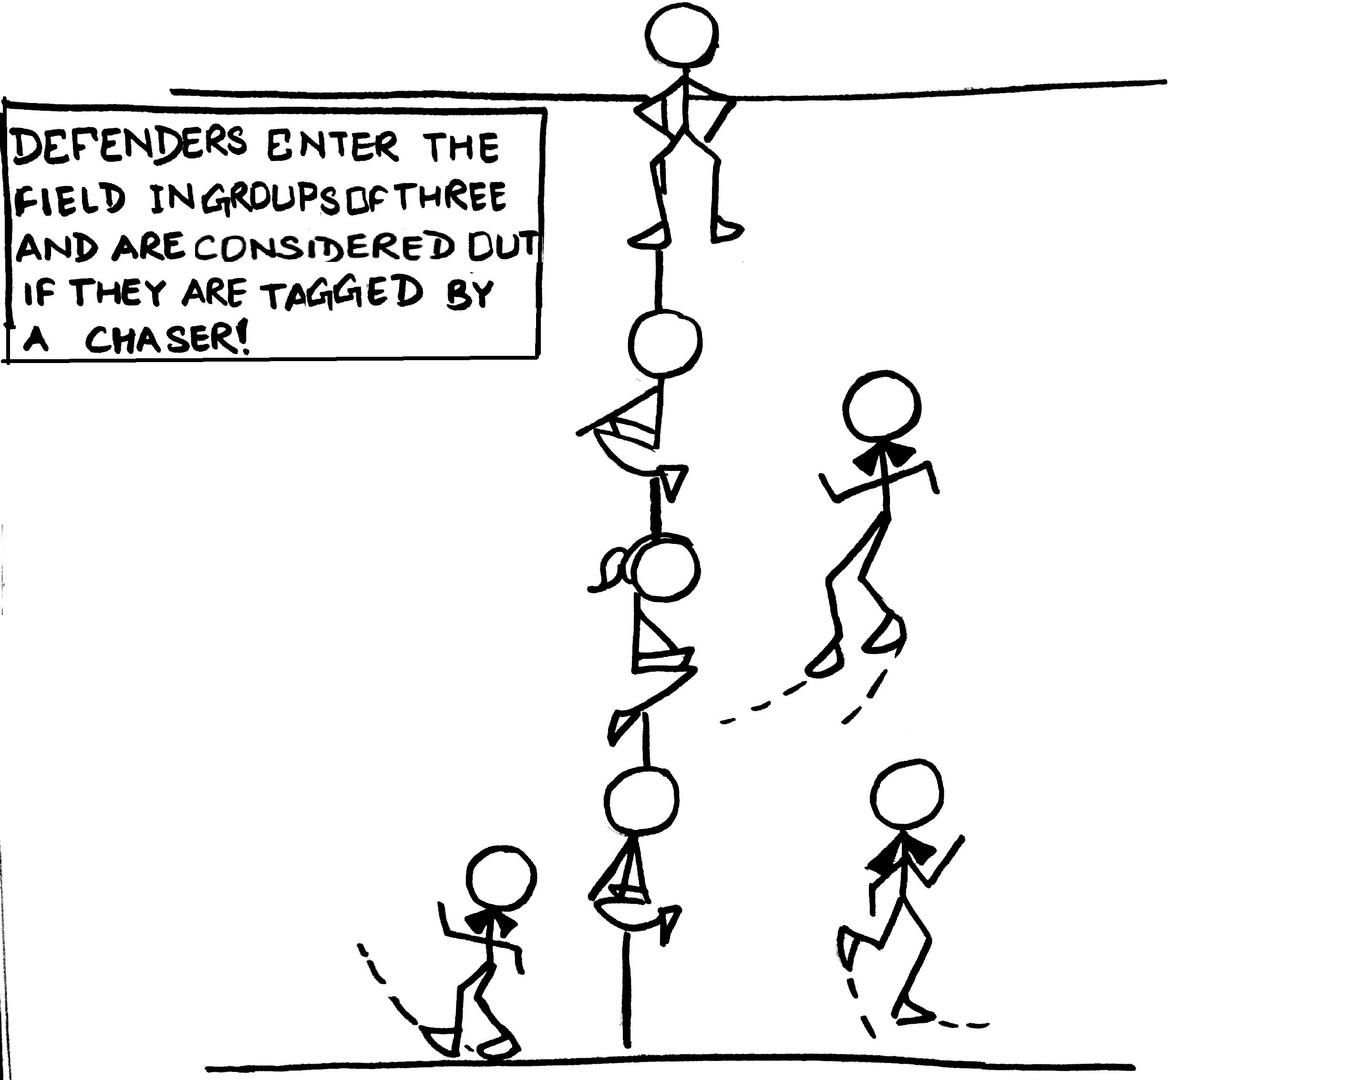 DEFENDERS ENTER THE
FIELD IN GROUPS OF THREE
AND ARE CONSIDERED OUT
IF THEY ARE TAGGED BY
A CHASER!